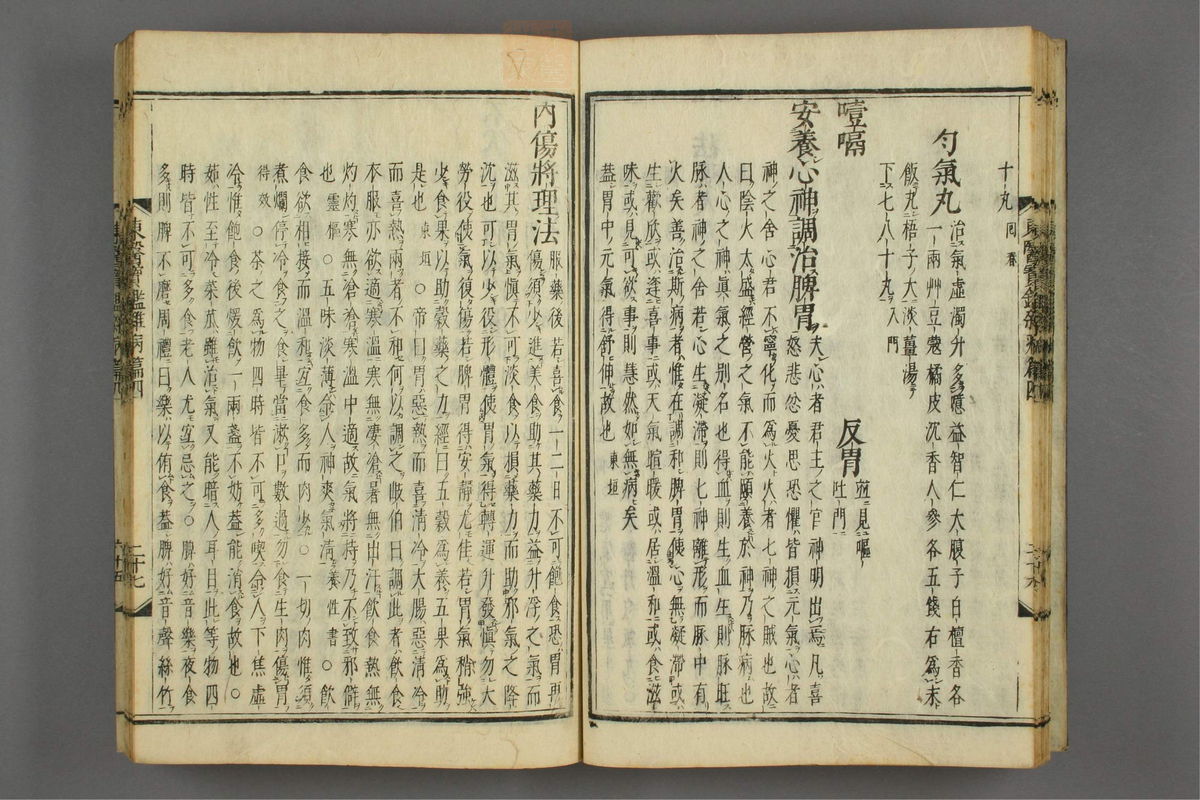 十丸 回春
勻氣丸 治氣虛濁升多噫益智仁大腹子白檀香各
一兩艸豆蔻橘皮沉香人參各五錢右爲末
飯丸梧子大淡薑湯
下七八十丸入門
噎嗝 反胃 並見嘔吐門
安養心神調治脾胃 夫心者君主之官神明出焉凡喜
怒悲忿憂思恐懼皆損元氣心者
神之舍心君不寧化而爲火火者七神之賊也故
曰陰火太盛經營之氣不能頤養於神乃脉病也
人心之神眞氣之別名也得血則生血生則脉旺
脉者神之舍若心生凝滯則七神離形而脉中有
火矣善治斯病者惟在調和脾胃使心無凝滯或
生歡欣或逢喜事或天氣暄暖或居溫和或食滋
味或見可欲事則慧然如無病矣
蓋胃中元氣得舒伸故也 東垣
內傷將理法 服藥後若喜食一二日不可飽食恐胃再
傷須少進美食助其藥力益升浮之氣而
滋其胃氣愼不可淡食以損藥力而助邪氣之降
沈也可以少役形體使胃氣得轉運升發愼勿大
勞役使氣復傷若脾胃得安靜尤佳若胃氣稍強
少食果以助穀藥之力經曰五穀爲養五果爲助
是也 東垣 ○帝曰胃惡熱而喜淸冷大腸惡淸冷
而喜熱兩者不和何以調之岐伯曰調此者飮食
衣服亦欲適寒溫寒無凄滄暑無出汗飮食熱無
灼灼寒無滄滄寒溫中適故氣將持乃不致邪僻
也 靈樞 ○五味淡薄令人神爽氣淸 養性書 ○飮
食欲相接而溫和宜食多而肉少○一切肉惟須
煮爛停冷食之食畢當漱口數過勿食生肉傷胃
得效 ○茶之爲物四時皆不可多喫令人下焦虛
冷惟飽食後煖飮一兩盞不妨蓋能消食故也○
茹性至冷菜苽雖治氣又能暗人耳目此等物四
時皆不可多食老人尤宜忌之○脾好音樂夜食
多則脾不磨周禮曰樂以侑食蓋脾好音聲絲竹
東醫寶鑑雜病篇四
二十七
六十五